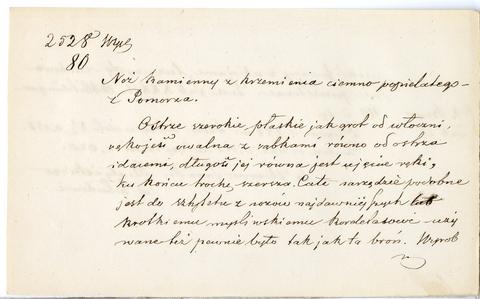 2528 Wyk
80
Noż kamienny z krzemienia ciemno popielatego
z Pomorza.
Ostrze szerokie płaskie jak grot od włoczni,
rękojeść owalna z ząbkami równo od ostrza
idącemi, długość jej równa jest ujęciu ręki,
ku końcu trochę szersza. Całe narzędzie podobne
jest do sztyletu z wzorów najdawniejszych lub
krótkiemu myśliwskiemu kordelasowi - uży
wane też pewnie było tak jak ta broń. Wyrob